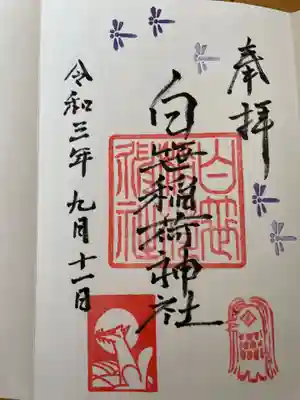 奉拝
白笹稲荷神社
白笹稲荷神社
令和三年九月十一日